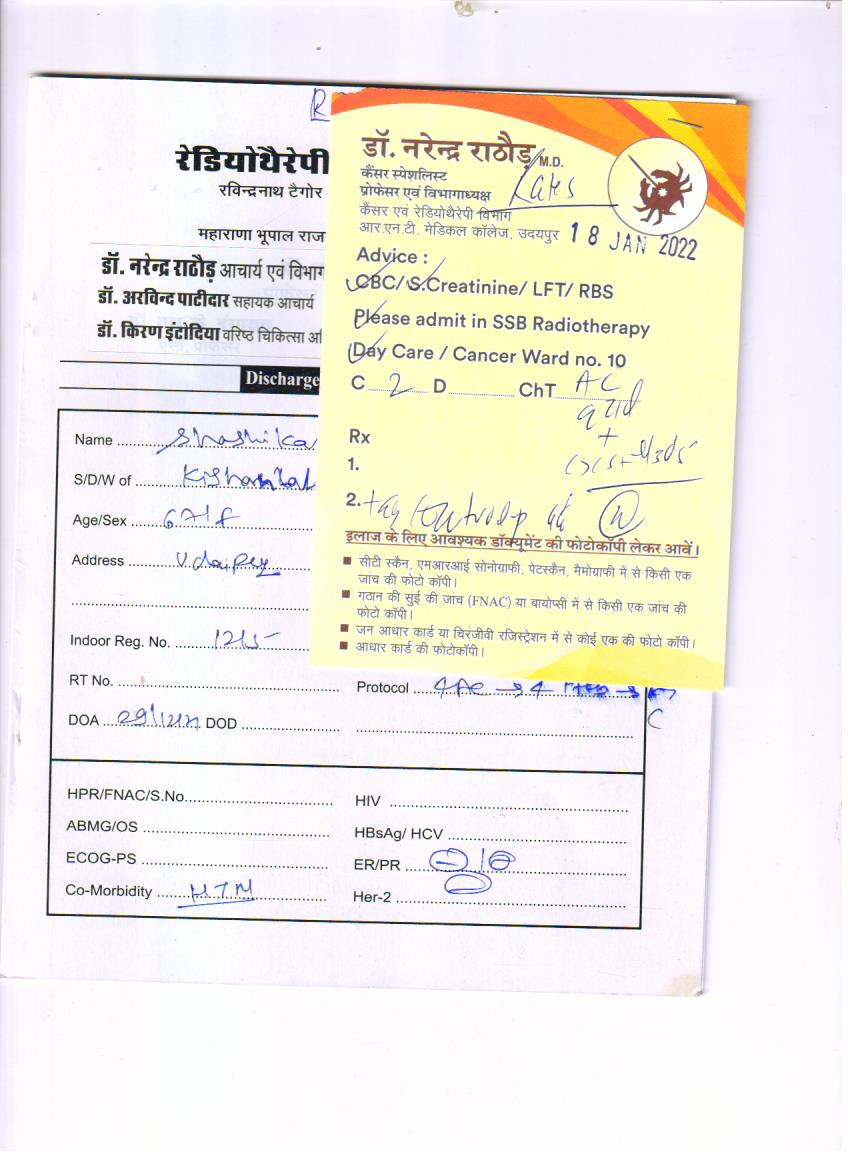 R
रेडियोथैरेपी
रविन्द्रनाथ टैगोर
महाराणा भूपाल राज
डॉ. नरेन्द्र राठौड़ आचार्य एवं विभाग
डॉ. अरविन्द पाटीदार सहायक आचार्य
डॉ. किरण इंटोदिया वरिष्ठ चिकित्सा अ
Discharge
Name Shashika
S/D/W of Kishanlal
Age/Sex 67/f
Address Udaipur
Indoor Reg. No. 1215
RT No.
DOA 29/12/21 DOD
Protocol 4AC → 4
C
HPR/FNAC/S.No.
ABMG/OS
ECOG-PS
Co-Morbidity HTN
HIV
HBsAg/ HCV
ER/PR ⊖/⊖
Her-2
डॉ. नरेन्द्र राठौड़ M.D.
कैंसर स्पेशलिस्ट
प्रोफेसर एवं विभागाध्यक्ष
कैंसर एवं रेडियोथैरेपी विभाग
आर.एन.टी. मेडिकल कॉलेज, उदयपुर 18 JAN 2022
Advice :
CBC/ S.Creatinine/ LFT/ RBS
Please admit in SSB Radiotherapy
Day Care / Cancer Ward no. 10
C 2 D ChT AC
q 21d
+
Rx
1.
2.
इलाज के लिए आवश्यक डॉक्यूमेंट की फोटोकॉपी लेकर आवें।
सीटी स्कैन, एमआरआई सोनोग्राफी, पेटस्कैन, मैमोग्राफी में से किसी एक
जांच की फोटो कॉपी।
गठान की सुई की जांच (FNAC) या बायोप्सी में से किसी एक जांच की
फोटो कॉपी।
जन आधार कार्ड या चिरंजीवी रजिस्ट्रेशन में से कोई एक की फोटो कॉपी।
आधार कार्ड की फोटोकॉपी।